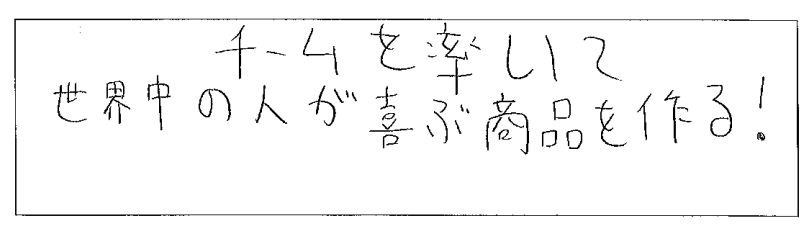 チームを率いて
世界中の人が喜ぶ商品を作る!